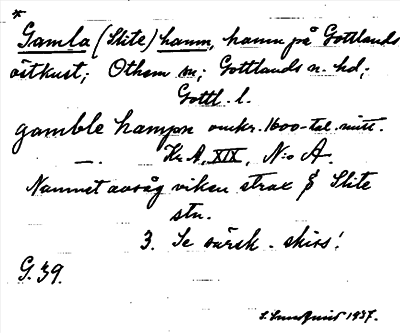 *
Gamla (Slite) hamn, hamn på Gottlands
östkust; Othem sn; Gottlands n. hd,
Gottl. l.
gamble hampn omkr. 1600-tal. mitt.
—. Kr. A, XIX, N:o A.
Namnet avsåg viken strax S Slite
stn.
3. Se särsk. skiss!
G. 39.
S. Lundquist 1937.